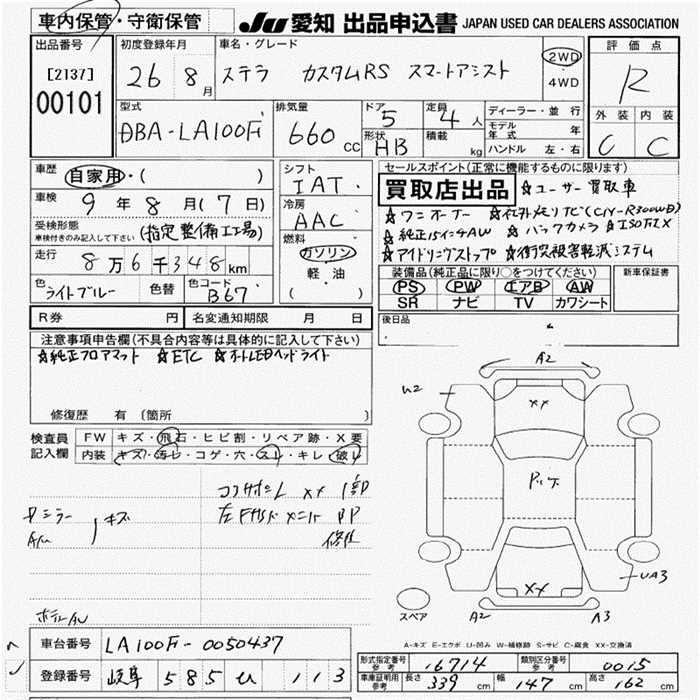 車内保管・守衛保管
JU 愛知 出品申込書 JAPAN USED CAR DEALERS ASSOCIATION
出品番号
[2137]
00101
初度登録年月
26 8月
車名・グレード
ステラ カスタムRS スマートアシスト
2WD
4WD
評価点
R
外装 内装
C C
型式
DBA-LA100F
排気量
660 cc
ドア
5
形状
HB
定員
4人
積載
kg
ディーラー・並行
モデル年式 年
ハンドル 左・右
車歴
自家用・( )
車検
9年8月(7日)
受検形態
車検付きのみ記入して下さい
(指定整備工場)
走行
8万6千348km
色
ライトブルー
色替
色コード
B67
シフト
IAT
冷房
AAC
燃料
ガソリン
軽油
( )
セールスポイント(正常に機能するものに限ります)
買取店出品 ☆ユーザー買取車
☆ワンオーナー ☆社外メモリナビ(CN-R300WB)
☆純正15インチAW ☆バックカメラ ☆ISOFIX
☆アイドリングストップ ☆衝突被害軽減システム
装備品(純正品に限り○をつけてください)
PS PW エアB AW
SR ナビ TV カワシート
新車保証書
R券 円
名変通知期限 月 日
後日品
注意事項申告欄(不具合内容等は具体的に記入して下さい)
☆純正フロアマット ☆ETC ☆オートLEDヘッドライト
修復歴 有(箇所 )
検査員
記入欄
FW キズ・飛石・ヒビ割・リペア跡・X要
内装 キズ・汚レ・コゲ・穴・スレ・キレ・破レ
コアサポートL XX 1部
左Fサイドメンバー
修正
ミラー
キズ
AW
ホイールAW
A2
U2
XX
P.ツケ
XX
UA3
スペア
A2
A3
A-キズ E-エクボ U-凹み W-補修跡 S-サビ C-腐食 XX-交換済
車台番号
LA100F-0050437
登録番号
岐阜 585 い 113
型式指定番号
参考
16714
類別区分番号
参考
0015
車庫証明用
参考
長さ
339 cm
幅
147 cm
高さ
162 cm